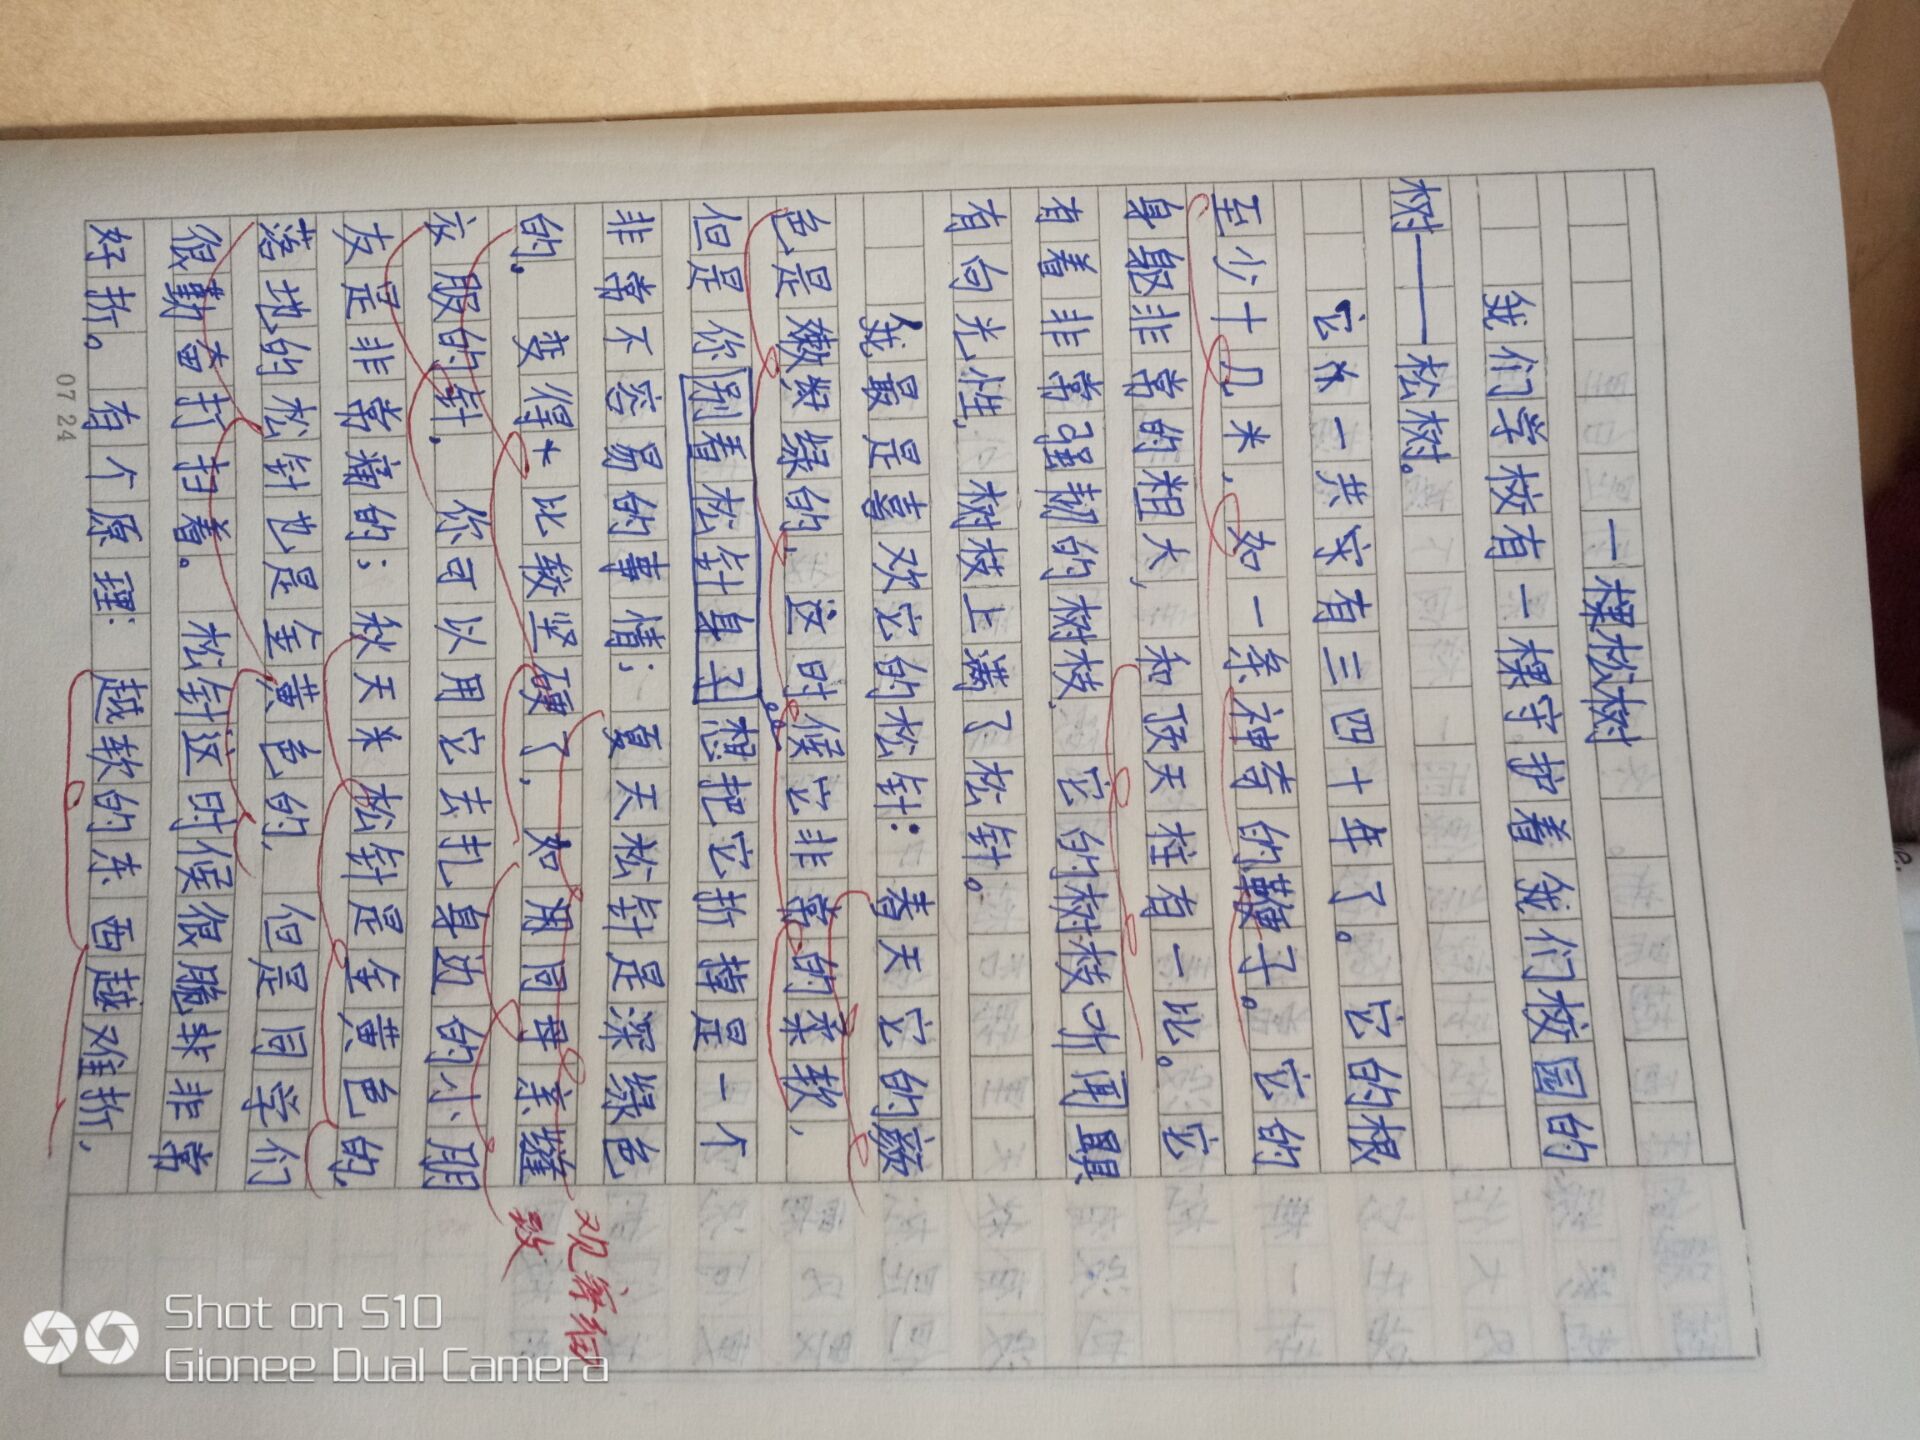 一棵松树
我们学校有一棵守护着我们校园的
树——松树。
它从一共实有三四十年了。它的根
至少十几米,如一条神奇的鞭子。它的
身躯非常的粗大,和顶天柱有一比。它
有着非常强韧的树枝,它的树枝
有向光性,树枝上满了松针。
我最是喜欢它的松针:春天它的颜
色是嫩嫩绿的,这时候它非常的柔软,
但是你别看松针身子想把它折掉是一个
非常不容易的事情;夏天松针是深绿色
的,变得比较坚硬了,如用同母亲缝
衣服的针,你可以用它去扎身边的小朋
友是非常痛的;秋天来松针是金黄色的,
落地的松针也是金黄色的,但是同学们
很勤奋打扫着。松针这时候很脆非常
好折。有个原理:越软的东西越难折,
观察细
致
07 24
Shot on S10
Gionee Dual Camera